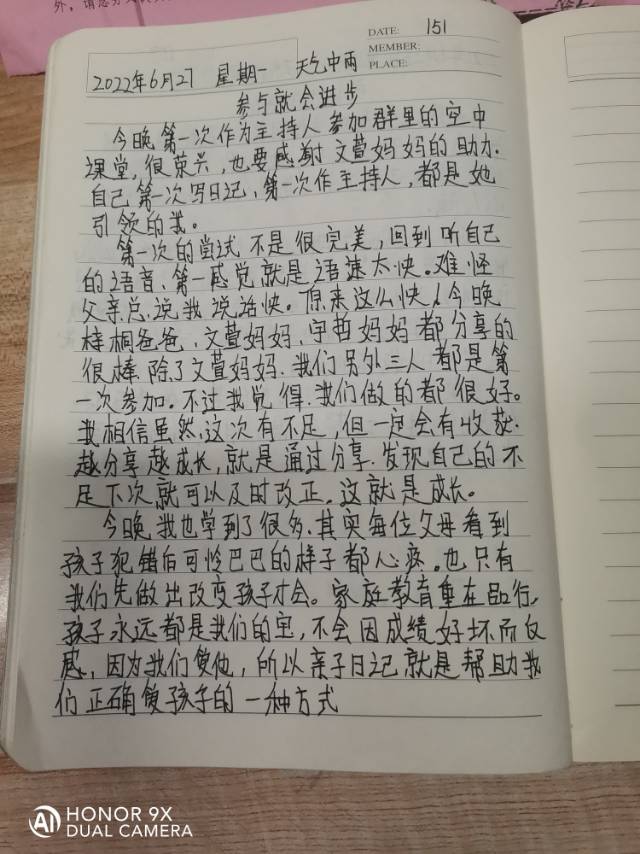 DATE: 151
MEMBER:
PLACE:
2022年6月27 星期一 天气中雨
参与就会进步
今晚第一次作为主持人参加群里的空中
课堂,很荣兴,也要感谢文萱妈妈的助力.
自己第一次写日记,第一次作主持人,都是她
引领的我。
第一次的尝试不是很完美,回到听自己
的语音、第一感觉就是语速太快。难怪
父亲总说我说话快。原来这么快!今晚
梓桐爸爸、文萱妈妈、宇哲妈妈都分享的
很棒.除了文萱妈妈.我们另外三人都是第
一次参加.不过我觉得.我们做的都很好。
我相信虽然这次有不足,但一定会有收获.
越分享越成长,就是通过分享.发现自己的不
足下次就可以及时改正。这就是成长。
今晚我也学到了很多.其实每位父母看到
孩子犯错后可怜巴巴的样子都心疼。也只有
我们先做出改变孩子才会。家庭教育重在品行,
孩子永远都是我们的宝,不会因成绩好坏而反
感,因为我们爱他,所以亲子日记就是帮助我
们正确爱孩子的一种方式
HONOR 9X
AI DUAL CAMERA